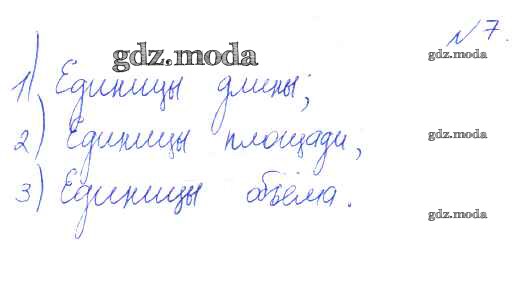 № 7.
gdz.moda
gdz.moda
1) Единицы длины;
2) Единицы площади,
gdz.moda
3) Единицы объёма.
gdz.moda